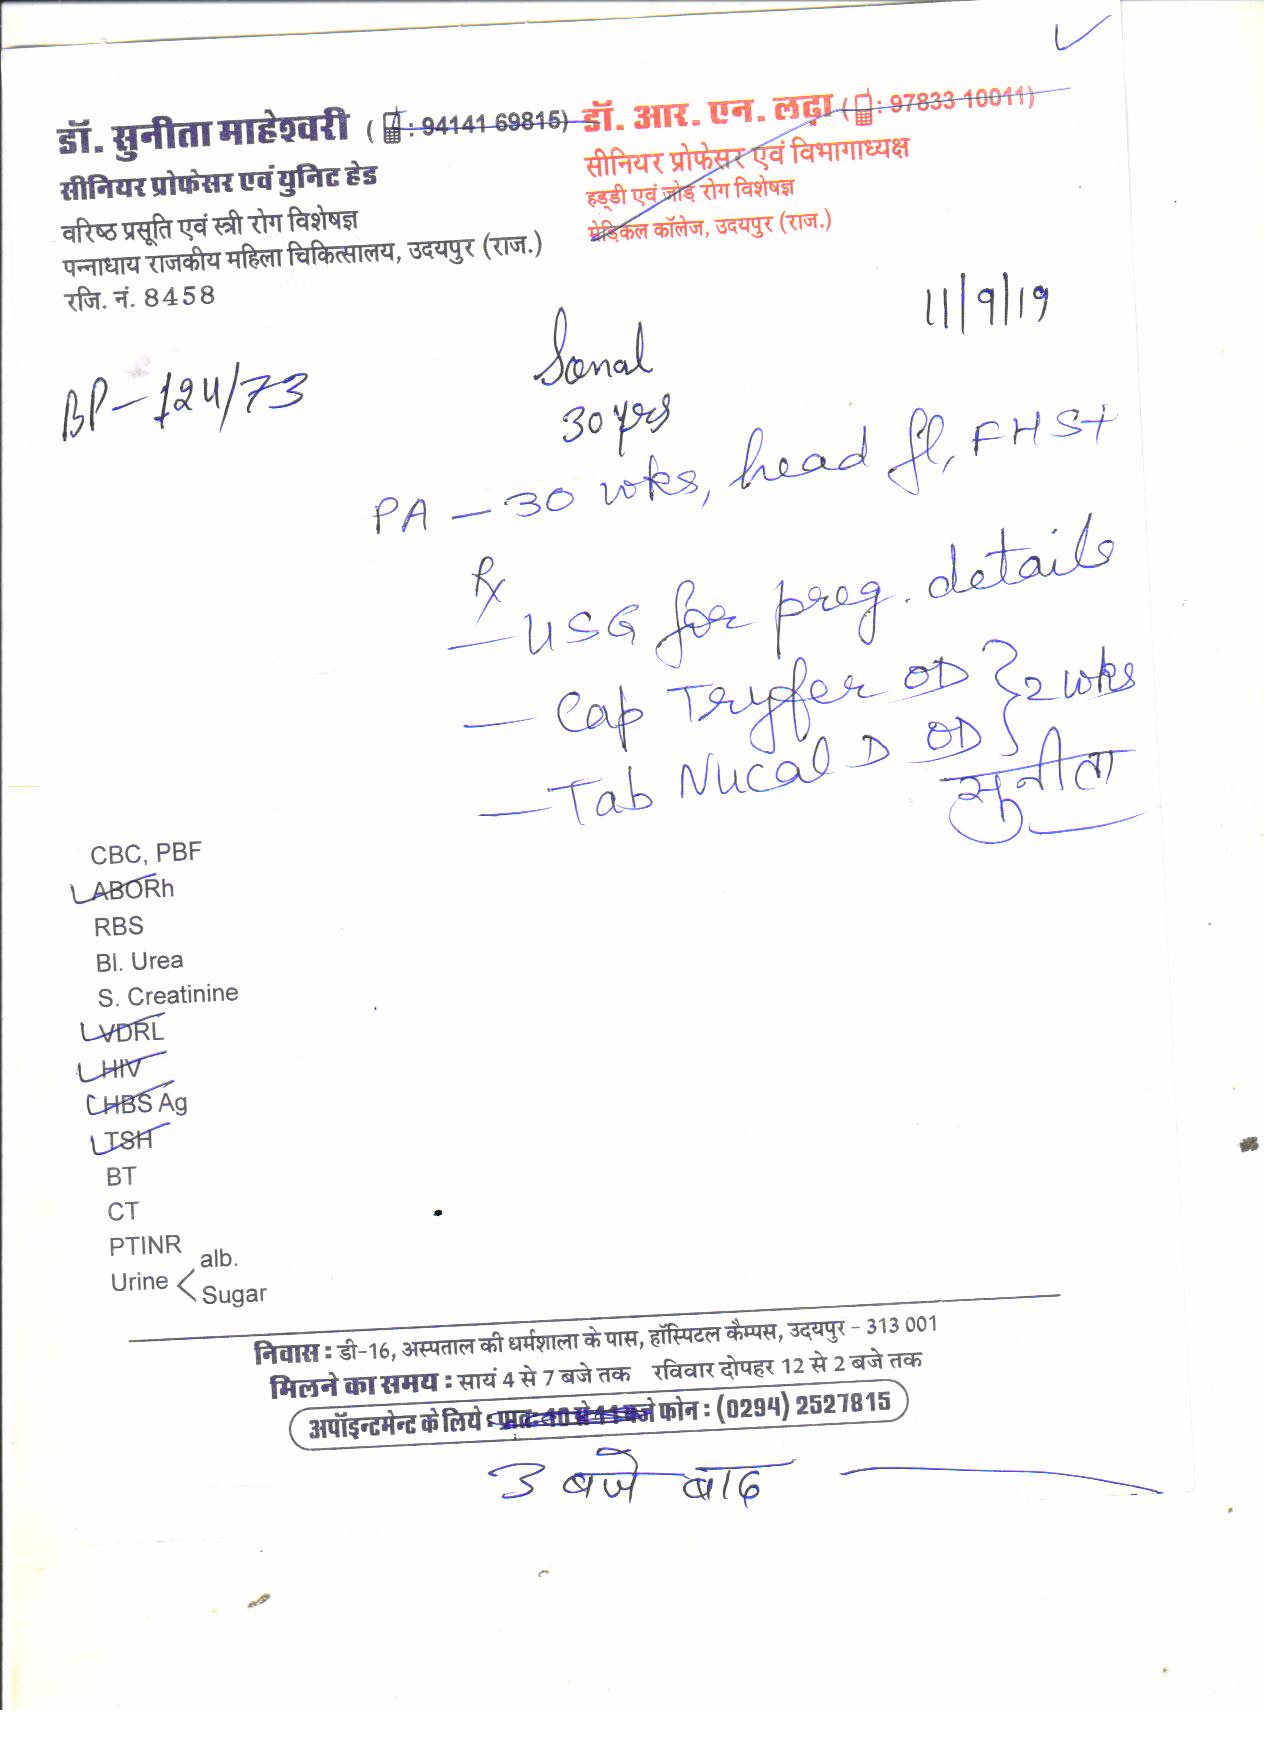 डॉ. सुनीता माहेश्वरी ( : 94141 69815)
सीनियर प्रोफेसर एवं युनिट हेड
वरिष्ठ प्रसूति एवं स्त्री रोग विशेषज्ञ
पन्नाधाय राजकीय महिला चिकित्सालय, उदयपुर (राज.)
रजि. नं. 8458
डॉ. आर. एन. लढ़ा ( : 97833 10011)
सीनियर प्रोफेसर एवं विभागाध्यक्ष
हड्डी एवं जोड़ रोग विशेषज्ञ
मेडिकल कॉलेज, उदयपुर (राज.)
11/9/19
BP - 124/73
Sonal
30 yrs
PA - 30 wks, head fl, FHS+
Rx
- USG for preg. details
- Cap Tryfer OD } 2 wks
- Tab Nucal D OD
सुनीता
CBC, PBF
ABORh
RBS
Bl. Urea
S. Creatinine
VDRL
HIV
HBS Ag
TSH
BT
CT
PTINR
Urine < alb.
Sugar
निवास : डी-16, अस्पताल की धर्मशाला के पास, हॉस्पिटल कैम्पस, उदयपुर - 313 001
मिलने का समय : सायं 4 से 7 बजे तक रविवार दोपहर 12 से 2 बजे तक
अपॉइन्टमेन्ट के लिये : प्रातः 10 से 11 बजे फोन : (0294) 2527815
3 बजे बाद